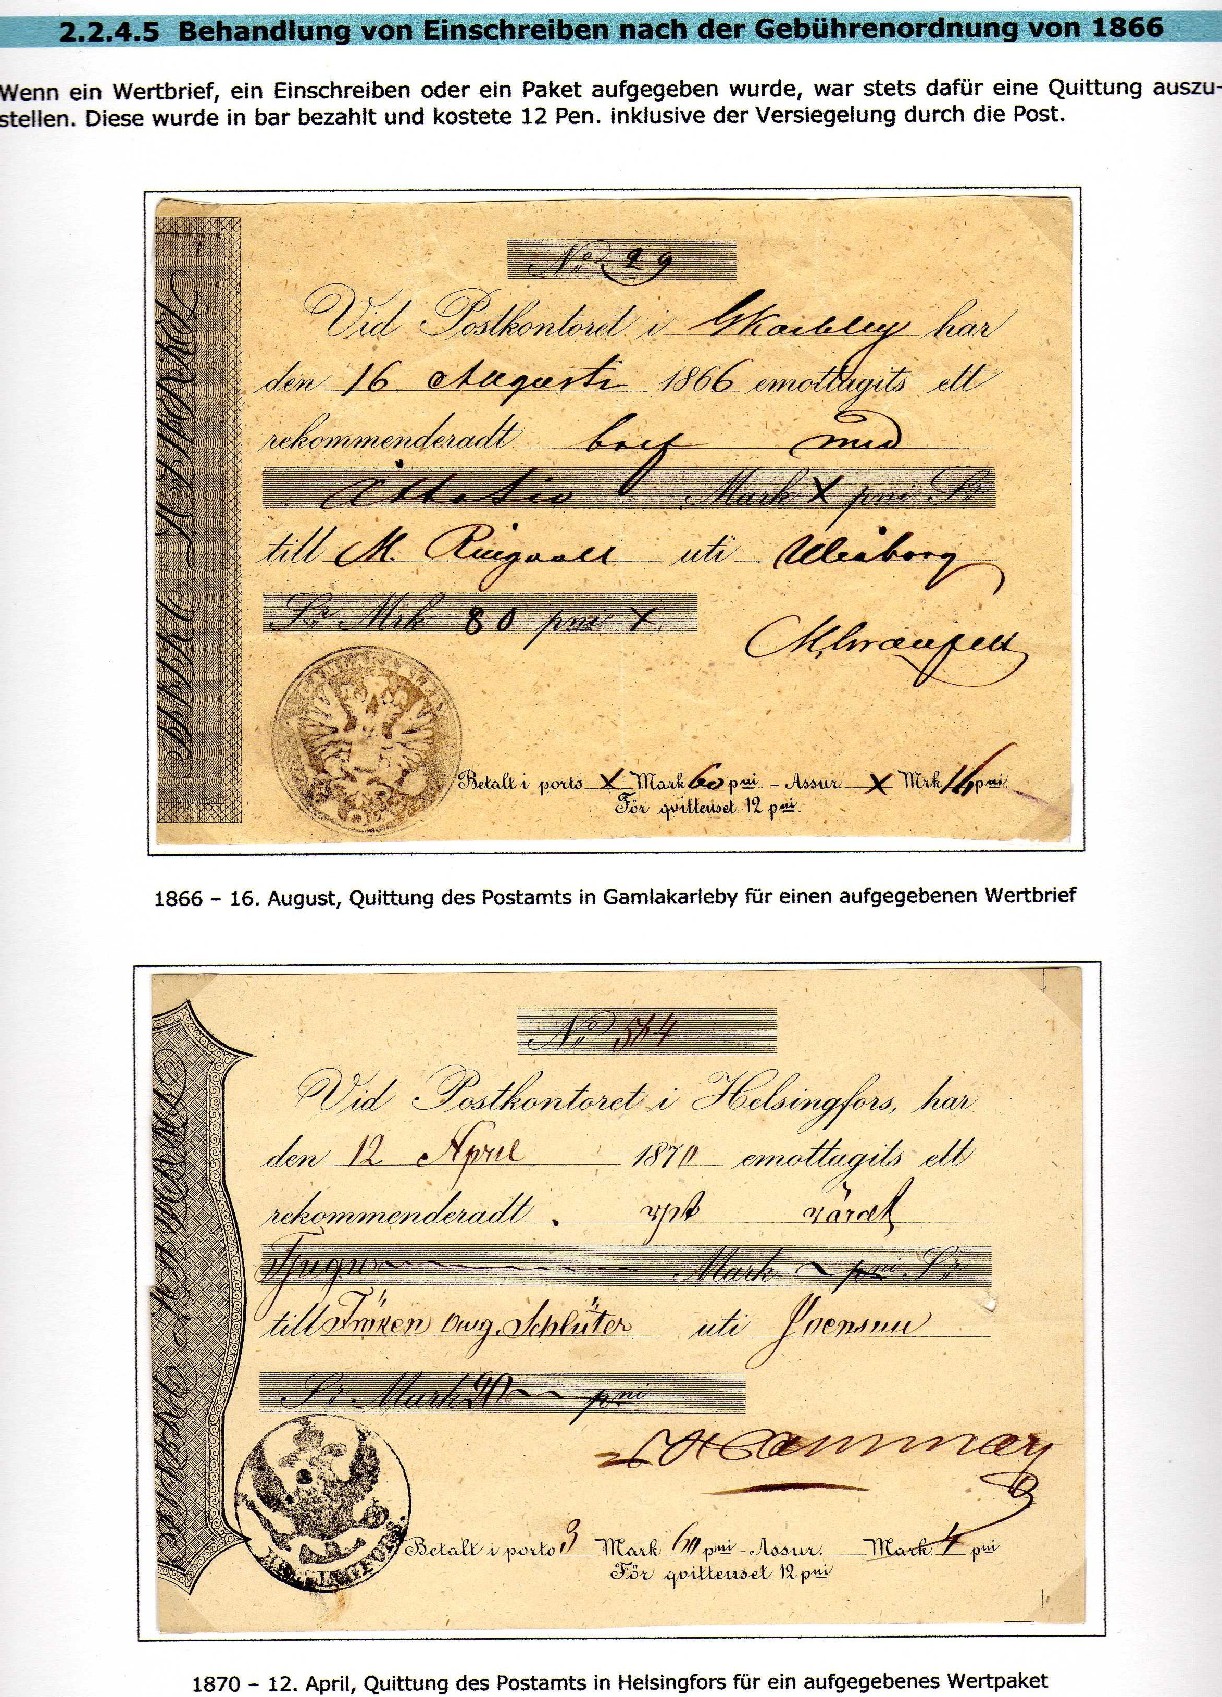 2.2.4.5 Behandlung von Einschreiben nach der Gebührenordnung von 1866
Wenn ein Wertbrief, ein Einschreiben oder ein Paket aufgegeben wurde, war stets dafür eine Quittung auszu-
stellen. Diese wurde in bar bezahlt und kostete 12 Pen. inklusive der Versiegelung durch die Post.
No 29
Vid Postkontoret i GKarleby har
den 16 Augusti 1866 emottagits ett
rekommenderadt bref med
Åttatio Mark X pni Sr
till M. Ringvall uti Uleåborg
Sr Mrk 80 pni X
Betalt i porto X Mark 60 pni - Assur X Mrk 16 pni
För qvittenset 12 pni.
1866 – 16. August, Quittung des Postamts in Gamlakarleby für einen aufgegebenen Wertbrief
No 584
Vid Postkontoret i Helsingfors, har
den 12 April 1870 emottagits ett
rekommenderadt värdt
Tjugu Mark pni Sr
till Fröken Aug. Schlüter uti Joensuu
Sr Mark 20 pni
Betalt i porto 3 Mark 60 pni - Assur. Mark 4 pni
För qvittenset 12 pni
1870 – 12. April, Quittung des Postamts in Helsingfors für ein aufgegebenes Wertpaket